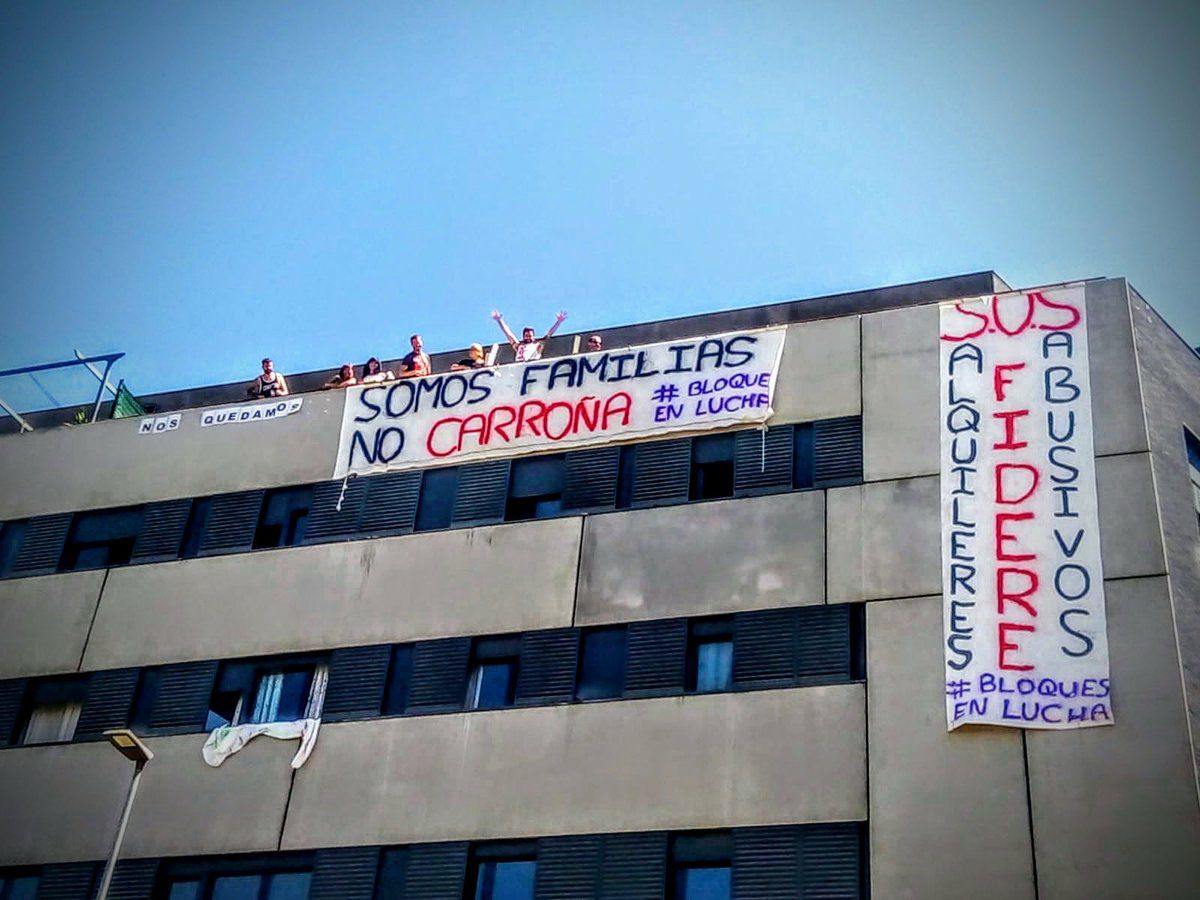 NOS QUEDAMOS
SOMOS FAMILIAS
NO CARROÑA
# BLOQUE
EN LUCHA
S.O.S
ALQUILERES
FIDERE
ABUSIVOS
# BLOQUES
EN LUCHA